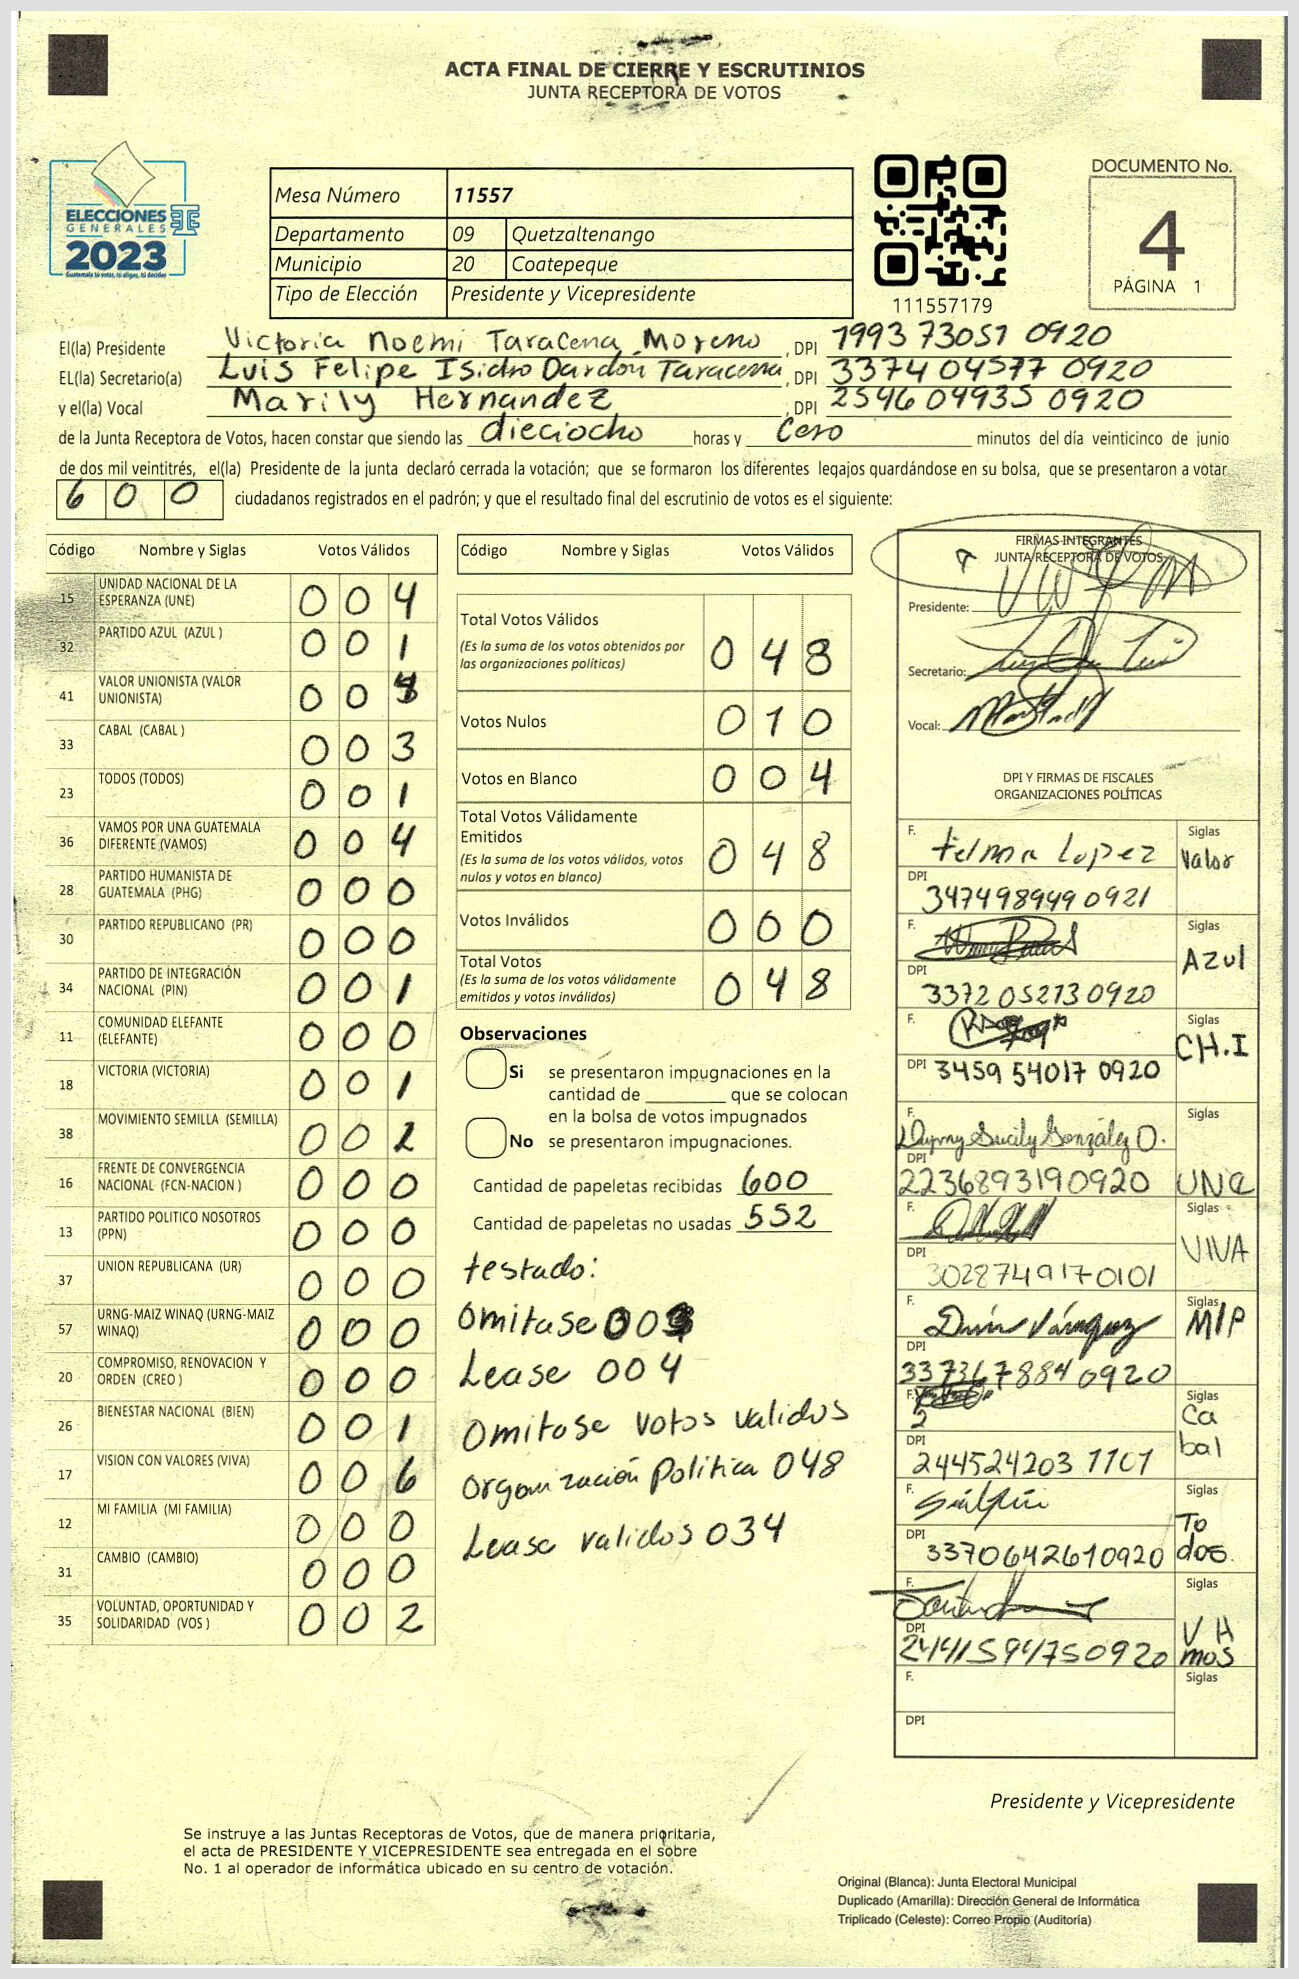 ACTA FINAL DE CIERRE Y ESCRUTINIOS
JUNTA RECEPTORA DE VOTOS
ELECCIONES
GENERALES
2023
Guatemala tú votas, tú eliges, tú decides
Mesa Número 11557
Departamento 09 Quetzaltenango
Municipio 20 Coatepeque
Tipo de Elección Presidente y Vicepresidente
111557179
DOCUMENTO No.
4
PÁGINA 1
El(la) Presidente Victoria Noemi Taracena Moreno, DPI 1993 73051 0920
EL(la) Secretario(a) Luis Felipe Isidro Dardón Taracena, DPI 3374 04577 0920
y el(la) Vocal Marily Hernandez, DPI 2546 04935 0920
de la Junta Receptora de Votos, hacen constar que siendo las dieciocho horas y cero minutos del día veinticinco de junio
de dos mil veintitrés, el(la) Presidente de la junta declaró cerrada la votación; que se formaron los diferentes legajos guardándose en su bolsa, que se presentaron a votar
600 ciudadanos registrados en el padrón; y que el resultado final del escrutinio de votos es el siguiente:
Código Nombre y Siglas Votos Válidos
15 UNIDAD NACIONAL DE LA ESPERANZA (UNE) 004
32 PARTIDO AZUL (AZUL ) 001
41 VALOR UNIONISTA (VALOR UNIONISTA) 004
33 CABAL (CABAL ) 003
23 TODOS (TODOS) 001
36 VAMOS POR UNA GUATEMALA DIFERENTE (VAMOS) 004
28 PARTIDO HUMANISTA DE GUATEMALA (PHG) 000
30 PARTIDO REPUBLICANO (PR) 000
34 PARTIDO DE INTEGRACIÓN NACIONAL (PIN) 001
11 COMUNIDAD ELEFANTE (ELEFANTE) 000
18 VICTORIA (VICTORIA) 001
38 MOVIMIENTO SEMILLA (SEMILLA) 002
16 FRENTE DE CONVERGENCIA NACIONAL (FCN-NACION ) 000
13 PARTIDO POLITICO NOSOTROS (PPN) 000
37 UNION REPUBLICANA (UR) 000
57 URNG-MAIZ WINAQ (URNG-MAIZ WINAQ) 000
20 COMPROMISO, RENOVACION Y ORDEN (CREO ) 000
26 BIENESTAR NACIONAL (BIEN) 001
17 VISION CON VALORES (VIVA) 006
12 MI FAMILIA (MI FAMILIA) 000
31 CAMBIO (CAMBIO) 000
35 VOLUNTAD, OPORTUNIDAD Y SOLIDARIDAD (VOS ) 002
Código Nombre y Siglas Votos Válidos
Total Votos Válidos 048
(Es la suma de los votos obtenidos por
las organizaciones políticas)
Votos Nulos 010
Votos en Blanco 004
Total Votos Válidamente
Emitidos 048
(Es la suma de los votos válidos, votos
nulos y votos en blanco)
Votos Inválidos 000
Total Votos 048
(Es la suma de los votos válidamente
emitidos y votos inválidos)
Observaciones
Si se presentaron impugnaciones en la
cantidad de ________ que se colocan
en la bolsa de votos impugnados
No se presentaron impugnaciones.
Cantidad de papeletas recibidas 600
Cantidad de papeletas no usadas 552
testado:
Omitase 003
Lease 004
Omitase votos validos
organización politica 048
Lease validos 034
FIRMAS INTEGRANTES
JUNTA RECEPTORA DE VOTOS
Presidente:
Secretario:
Vocal:
DPI Y FIRMAS DE FISCALES
ORGANIZACIONES POLÍTICAS
F. Telma Lopez Siglas Valor
DPI 347498949 0921
F. Siglas Azul
DPI 3372 05273 0920
F. Siglas CH.I
DPI 3459 54017 0920
F. Sucily González O. Siglas
DPI 2236893190920 UNE
F. Siglas VIVA
DPI 3028749170101
F. Siglas MIP
DPI 337367884 0920
F. Siglas Cabal
DPI 244524203 1101
F. Siglas Todos.
DPI 3370642610920
F. Siglas VAmos
DPI 2441594750920
F. Siglas
DPI
Presidente y Vicepresidente
Se instruye a las Juntas Receptoras de Votos, que de manera prioritaria,
el acta de PRESIDENTE Y VICEPRESIDENTE sea entregada en el sobre
No. 1 al operador de informática ubicado en su centro de votación.
Original (Blanca): Junta Electoral Municipal
Duplicado (Amarilla): Dirección General de Informática
Triplicado (Celeste): Correo Propio (Auditoría)